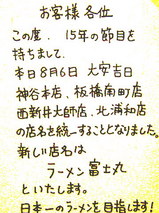 お客様各位
この度、15年の節目を
持ちまして、
本日8月6日 大安吉日
神谷本店、板橋南町店
西新井大師店、北浦和店
の店名を統一することとなりました。
新しい店名は
ラーメン富士丸
といたします。
日本一のラーメンを目指します!